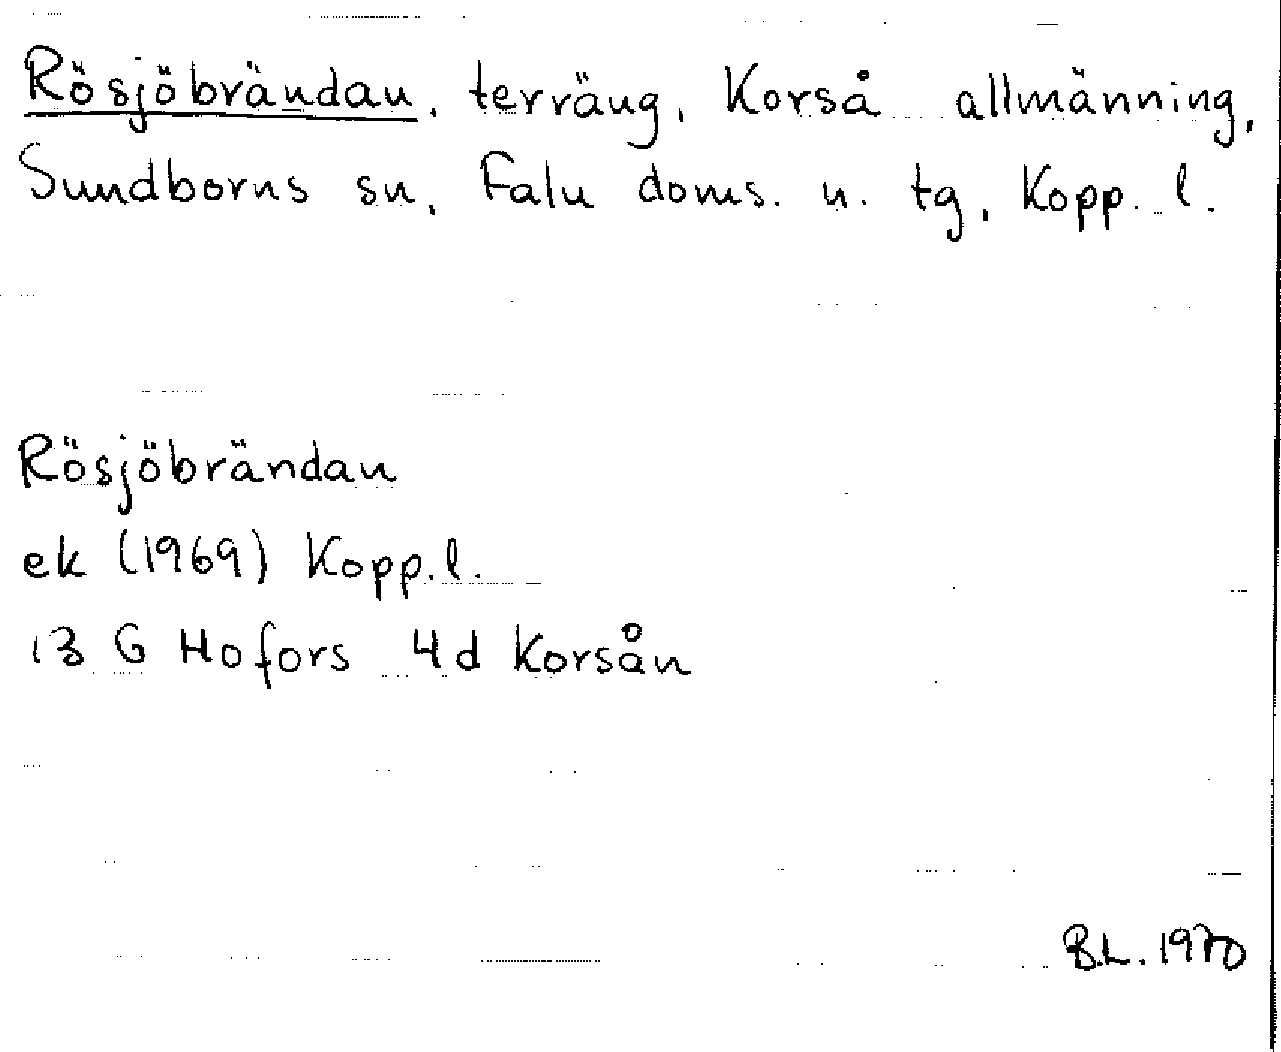 Rösjöbrändan, terräng, Korså allmänning,
Sundborns sn, Falu doms. n. tg, Kopp. l.
Rösjöbrändan
ek (1969) Kopp.l.
13 G Hofors 4d Korsån
B.L. 1970